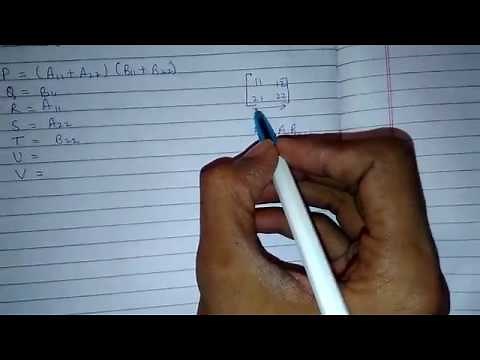 P = (A11 + A22) (B11 + B22)
Q = B11
R = A11
S = A22
T = B22
U =
V =
11 12
21 22
A B